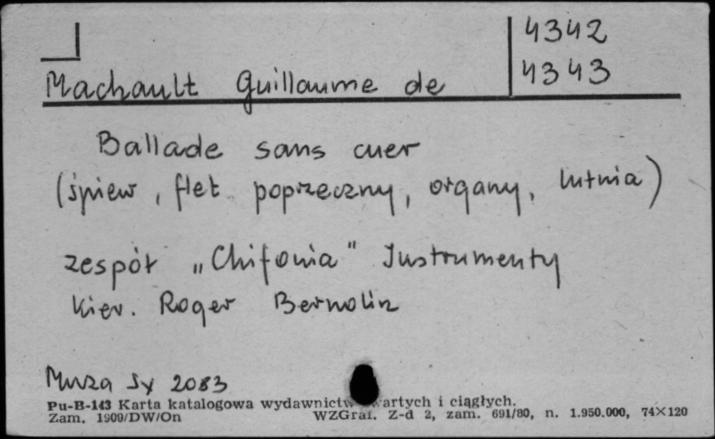 4342
4343
Machault Guillaume de
Ballade sans cuer
(śpiew, flet poprzeczny, organy, lutnia)
zespół „Chifonia" Instrumenty
Kier. Roger Bernolin
Muza Sx 2083
Pu-B-143 Karta katalogowa wydawnictw ciągłych.
Zam. 1909/DW/On WZGraf. Z-d 2, zam. 691/80, n. 1.950.000, 74×120